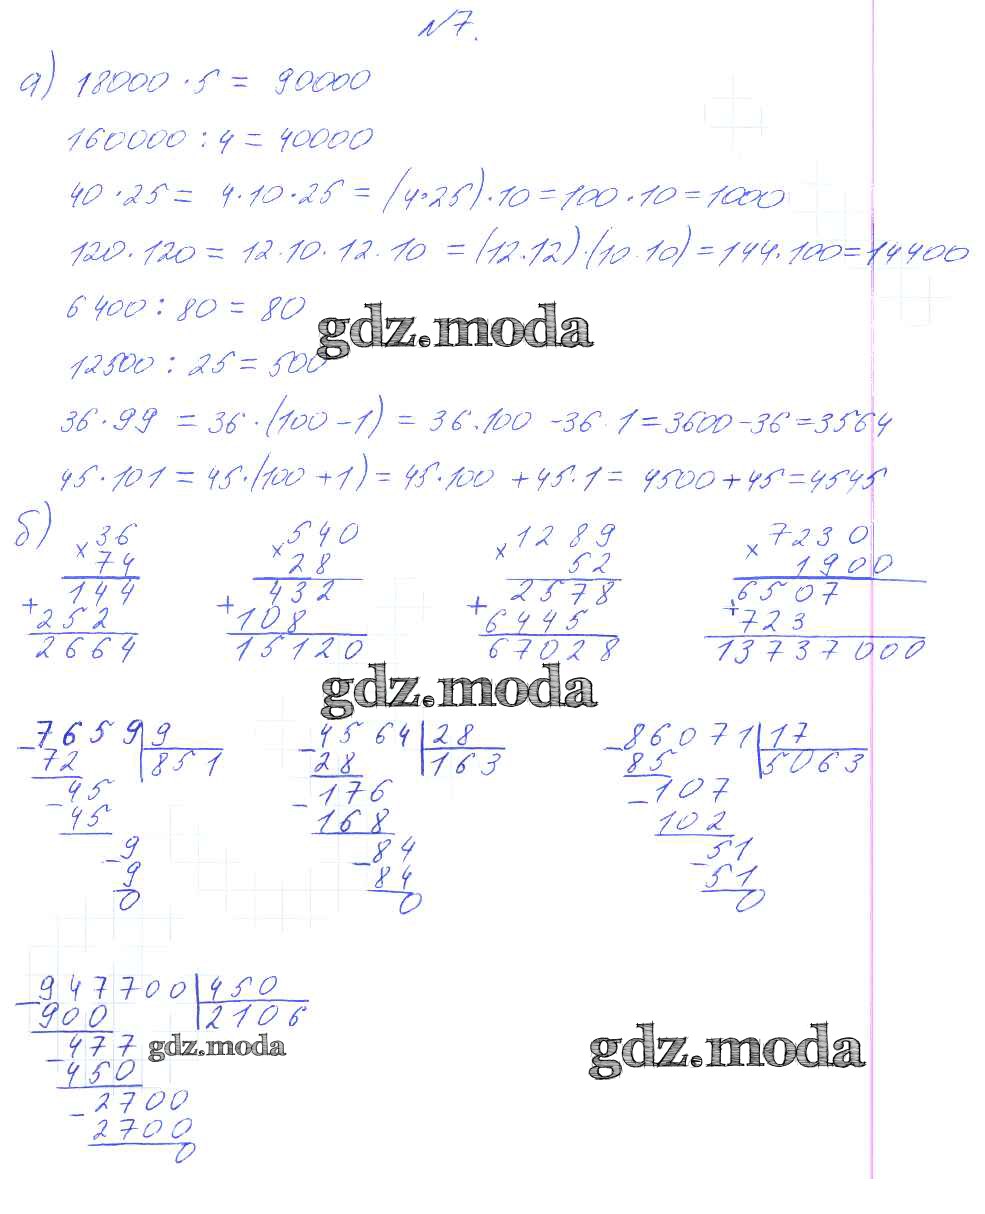 №7.
а) 18000 · 5 = 90000
160000 : 4 = 40000
40 · 25 = 4 · 10 · 25 = (4 · 25) · 10 = 100 · 10 = 1000
120 · 120 = 12 · 10 · 12 · 10 = (12 · 12) · (10 · 10) = 144 · 100 = 14400
6400 : 80 = 80
gdz.moda
12500 : 25 = 500
36 · 99 = 36 · (100 - 1) = 36 · 100 - 36 · 1 = 3600 - 36 = 3564
45 · 101 = 45 · (100 + 1) = 45 · 100 + 45 · 1 = 4500 + 45 = 4545
б) 36 540 1289 7230
× 74 × 28 × 52 × 1900
144 432 2578 6507
+ 252 + 108 + 6445 + 723
2664 15120 67028 13737000
gdz.moda
- 7659 | 9 - 4564 | 28 - 86071 | 17
72 851 28 163 85 5063
- 45 - 176 - 107
45 168 102
- 9 - 84 - 51
9 84 51
0 0 0
- 947700 | 450
900 2106
- 477 gdz.moda gdz.moda
450
- 2700
2700
0